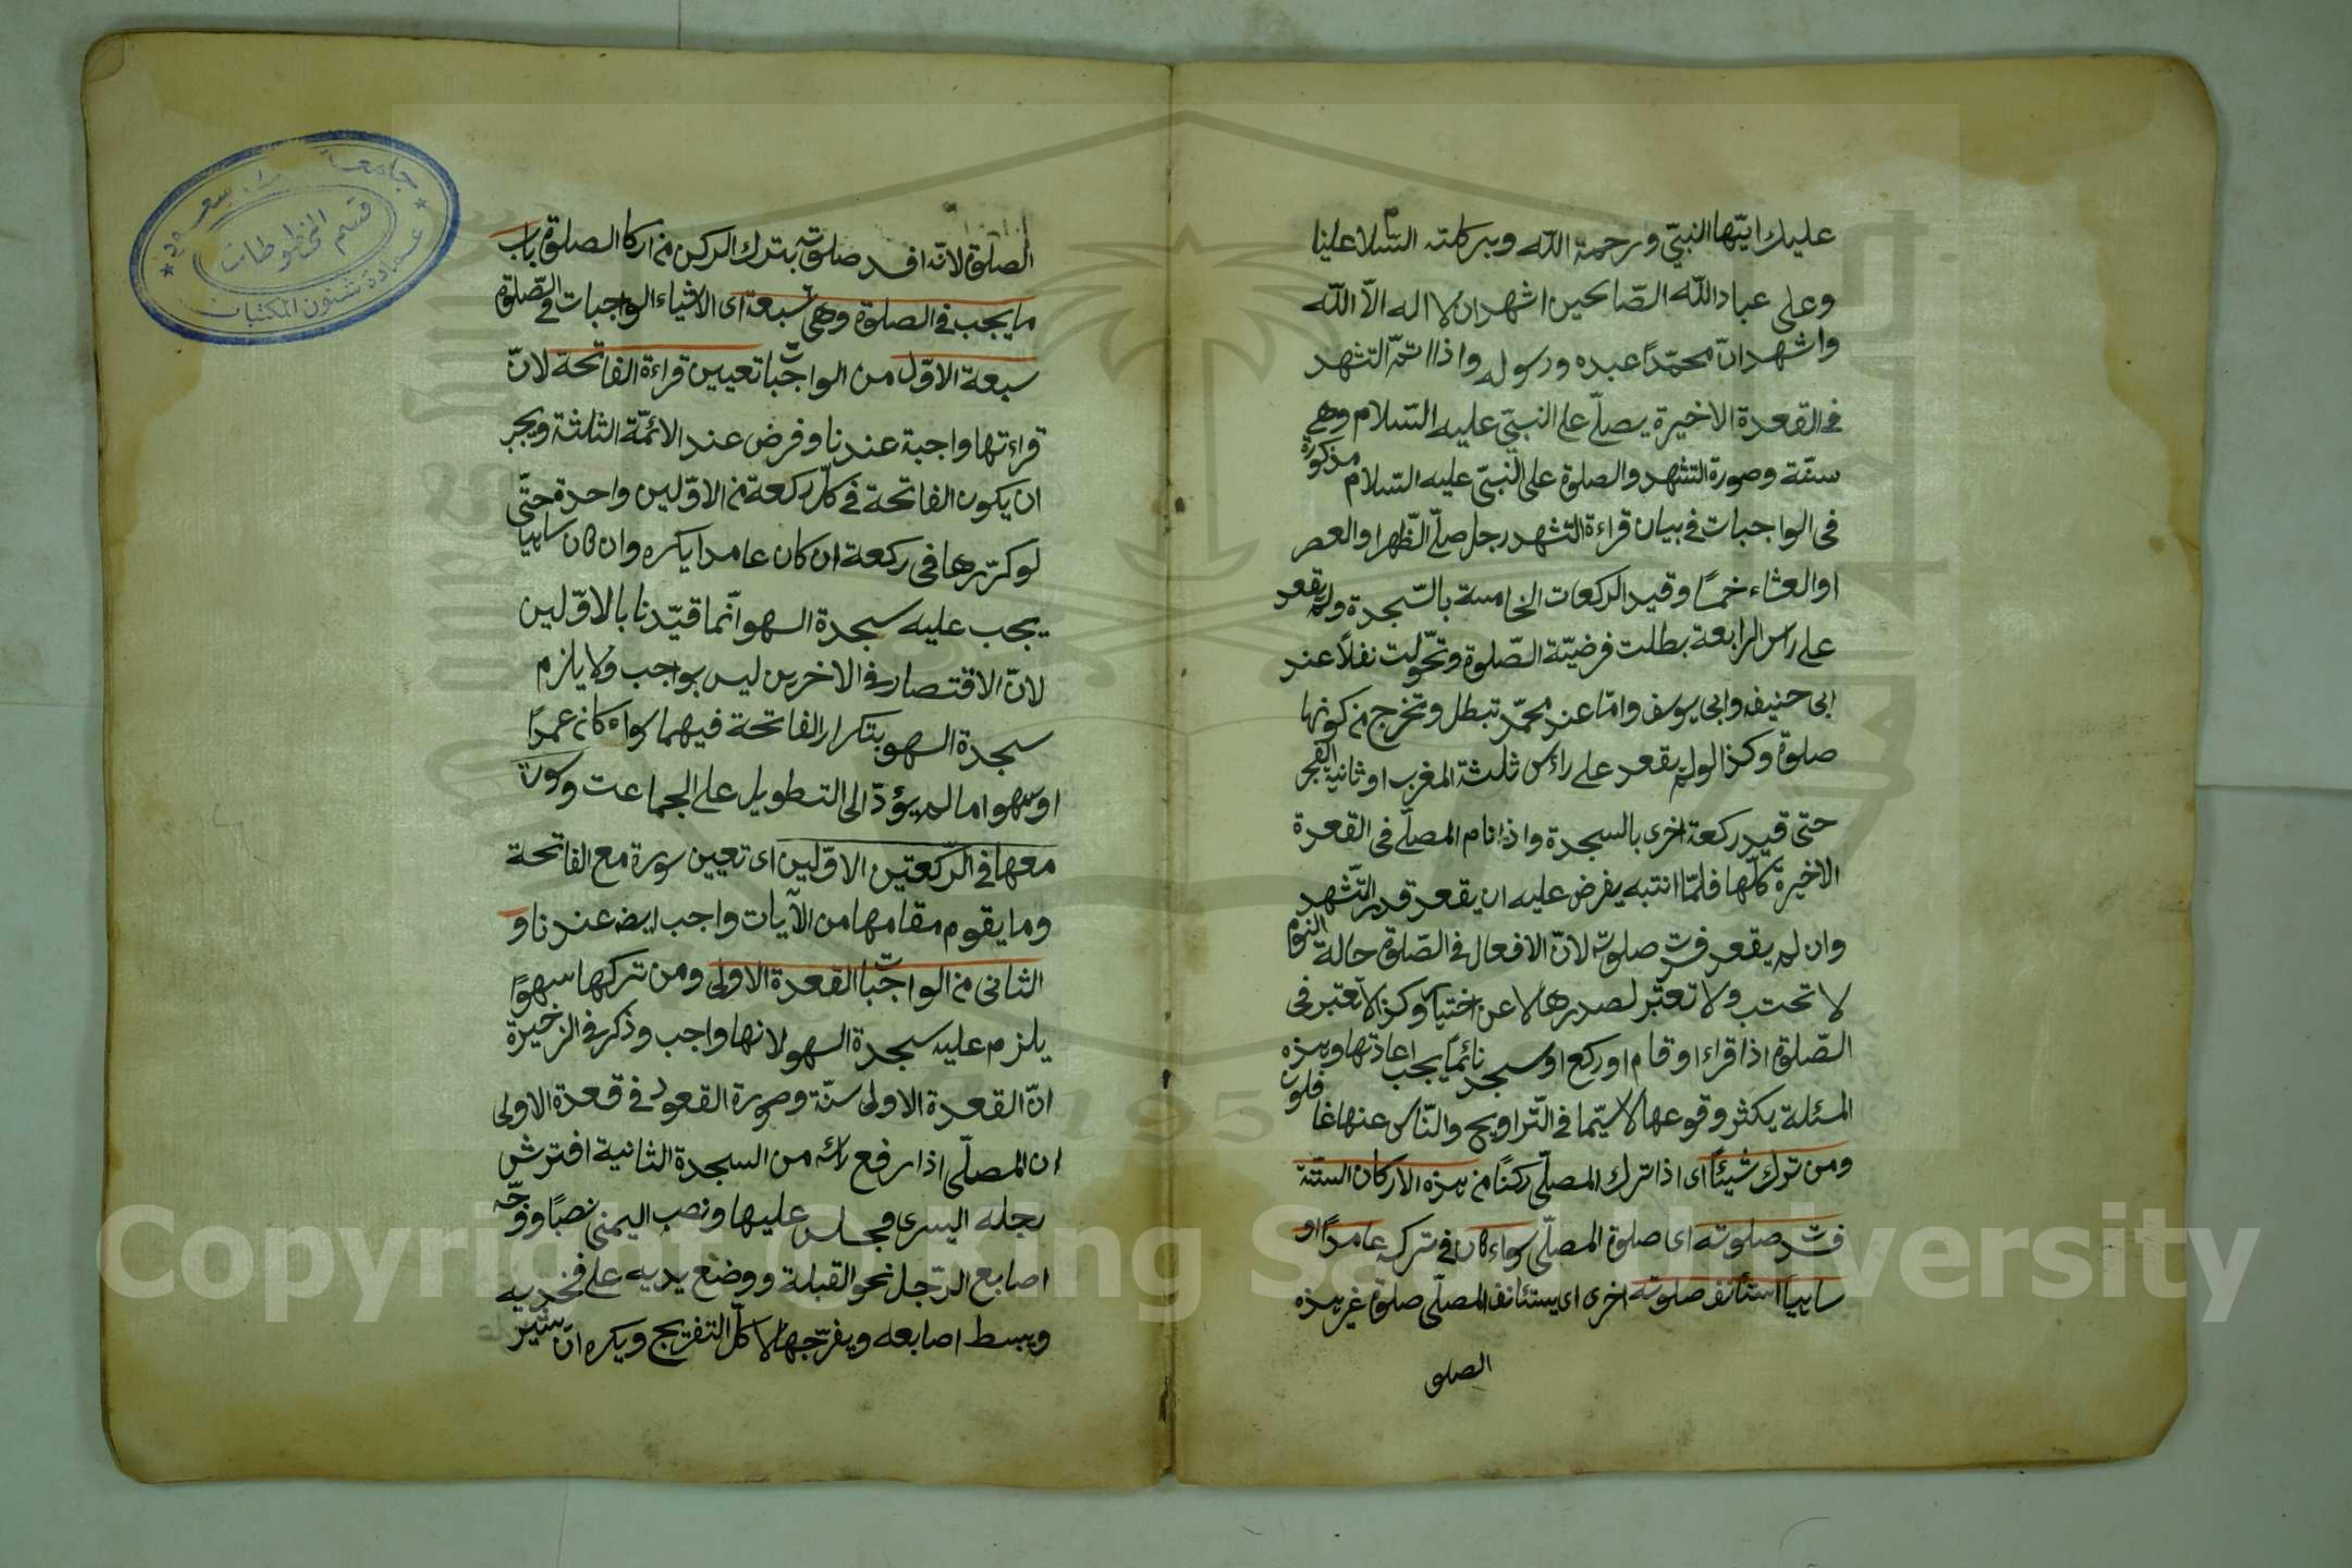 عليك ايّها النبيّ ورحمة الله وبركاته السّلام علينا
وعلى عباد الله الصّالحين اشهد ان لا اله الّا الله
واشهد انّ محمّدًا عبده ورسوله واذا اتمّ التشهد
في القعدة الاخيرة يصلّى على النبيّ عليه السّلام وهي
سنّة وصورة التشهد والصلوة على النبيّ عليه السّلام مذكورة
في الواجبات في بيان قراءة التشهد رجل صلّى الظّهر او العصر
او العشاء خمسًا وقيد الركعات الخامسة بالسّجدة ولم يقعد
على رأس الرابعة بطلت فرضيّة الصّلوة وتحوّلت نفلاً عند
ابى حنيفه وابى يوسف وامّا عند محمّد تبطل وتخرج من كونها
صلوة وكذا لو لم يقعد على رأس ثلثة المغرب او ثانية الفجر
حتى قيد ركعة اخرى بالسجدة واذا نام المصلّى في القعدة
الاخيرة كلّها فلمّا انتبه يفرض عليه ان يقعد قدر التّشهد
وان لم يقعد فسدت صلوته لانّ الافعال في الصّلوة حالة النوم
لا تحتسب ولا تعتبر لصدرها لا عن اختيار وكذا لا تعتبر في
الصّلوة اذا قراء او قام او ركع او سجد نائمًا يجب اعادتها وهذه
المسئلة يكثر وقوعها لا سيّما في التّراويح والنّاس عنها غافلون
ومن ترك شيئًا اى اذا ترك المصلّى ركنًا من هذه الاركان الستّة
فسدت صلوته اى صلوة المصلّى سواء كان في تركه عامدًا او
ساهيًا استأنف صلوته اخرى اى يستئانف المصلّى صلوة غير هذه
الصلو
الصلوة لانّه افسد صلوته بترك الركن من اركان الصلوة باب
ما يجب في الصلوة وهى سبعة اى الاشياء الواجبات في الصّلوة
سبعة الاوّل من الواجبات تعيين قراءة الفاتحة لانّ
قراءتها واجبة عندنا وفرض عند الائمّة الثلثة ويجب
ان يكون الفاتحة في كلّ ركعة من الاوّليين واحدة حتّى
لو كرّرها في ركعة ان كان عامدا يكره وان كان ساهيا
يجب عليه سجدة السهو انّما قيّدنا بالاوّليين
لانّ الاقتصار في الاخريين ليس بواجب ولا يلزم
سجدة السهو بتكرار الفاتحة فيهما سواء كان عمدًا
او سهوا ما لم يؤدّ الى التطويل على الجماعت وسورة
معها في الرّكعتين الاوّليين اى تعيين سورة مع الفاتحة
وما يقوم مقامها من الآيات واجب ايضا عندنا و
الثانى من الواجبات القعدة الاولى ومن تركها سهوًا
يلزم عليه سجدة السهو لانها واجب وذكر في الذخيرة
انّ القعدة الاولى سنّة وصورة القعود في قعدة الاولى
ان المصلّى اذا رفع رأسه من السجدة الثانية افترش
رجله اليسرى فجلس عليها ونصب اليمنى نصبًا ووجّه
اصابع الرّجل نحو القبلة ووضع يديه على فخذيه
وبسط اصابعه ويفرّجها لا كلّ التفريج ويكره ان يشير
قسم المخطوطات
عمادة شئون المكتبات
Copyright © King Saud University
1957